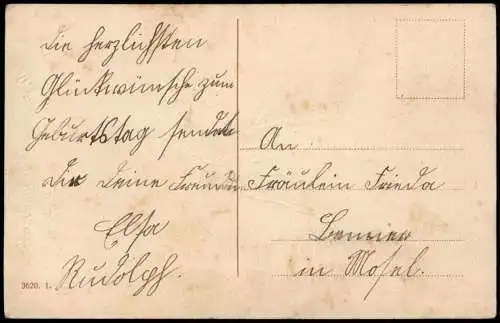 Die herzlichsten
Glückwünsche zum
Geburtstag sendet
Dir Deine Freundin
Elsa
Rudolph.
An
Fräulein Frieda
in Mosel.
3620. 1.